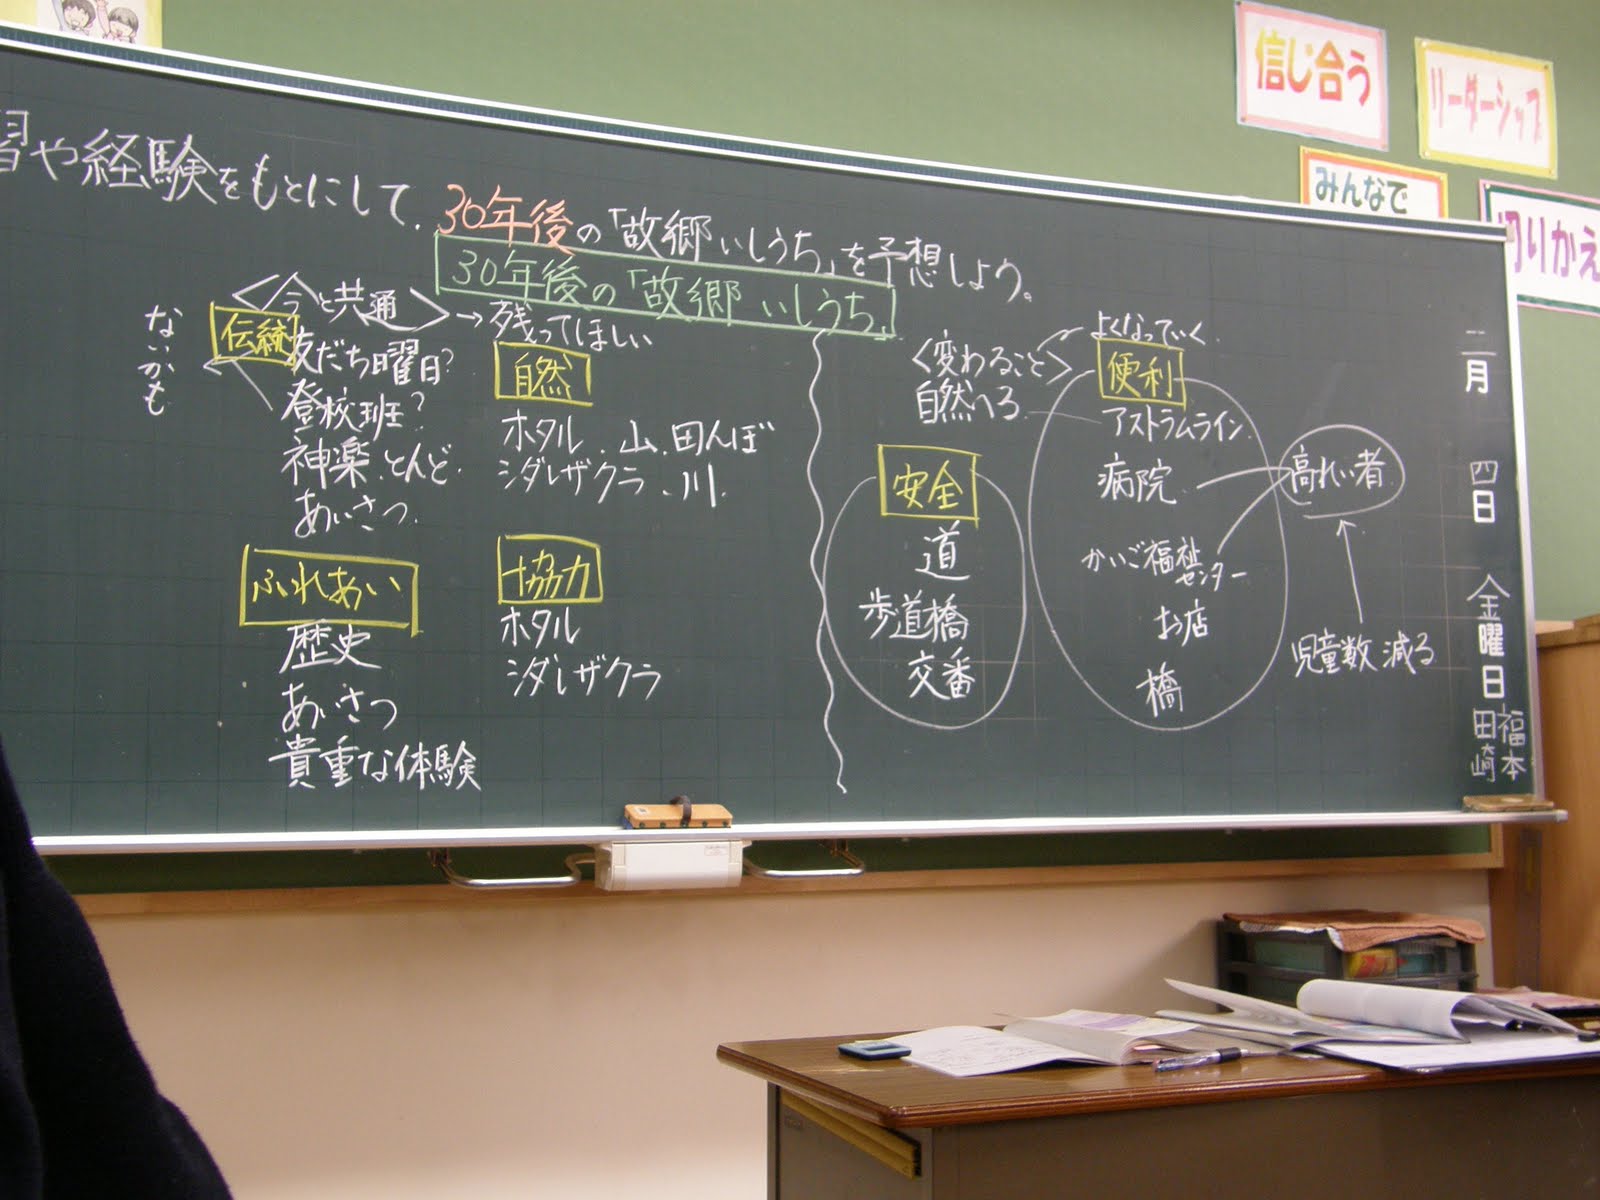 信じ合う
リーダーシップ
みんなで
切りかえ
習や経験をもとにして、30年後の「故郷いしうち」を予想しよう。
30年後の「故郷 いしうち」
<今と共通>→残ってほしい
ないかも
伝統
友だち曜日?
登校班?
神楽、とんど、
あいさつ、
自然
ホタル、山、田んぼ
シダレザクラ、川、
ふれあい
歴史
あいさつ
貴重な体験
協力
ホタル
シダレザクラ
<変わること>
よくなっていく
自然へる
安全
道
歩道橋
交番
便利
アストラムライン
病院
かいご福祉センター
お店
橋
高れい者
児童数減る
二月
四日
金曜日
福本
田崎